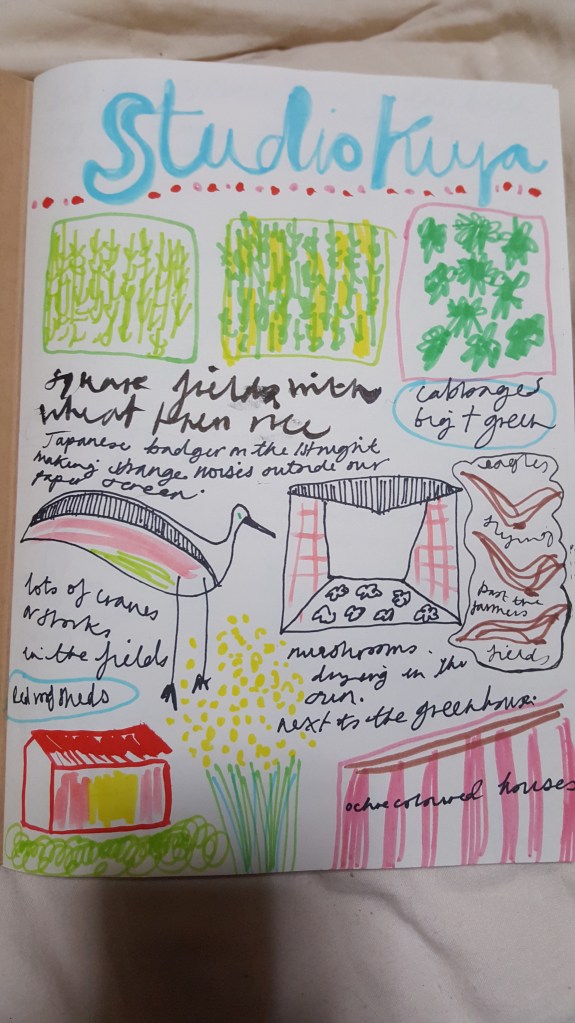 Studio Kuya
square fields with
wheat then rice
cabbages
big + green
Japanese badger in the 1st night
making strange noises outside our
paper screen.
eagles
flying
past the
farmers
fields
lots of cranes
or storks
in the fields
mushrooms.
drying in the
sun.
next to the greenhouse.
Red roof sheds
ochre coloured houses